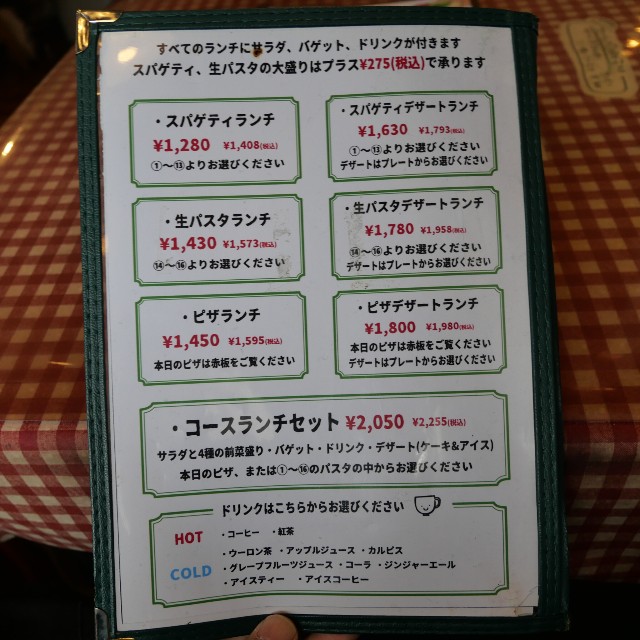 すべてのランチにサラダ、バゲット、ドリンクが付きます
スパゲティ、生パスタの大盛りはプラス¥275(税込)で承ります
・スパゲティランチ
¥1,280 ¥1,408(税込)
①〜⑬よりお選びください
・スパゲティデザートランチ
¥1,630 ¥1,793(税込)
①〜⑬よりお選びください
デザートはプレートからお選びください
・生パスタランチ
¥1,430 ¥1,573(税込)
⑭〜⑯よりお選びください
・生パスタデザートランチ
¥1,780 ¥1,958(税込)
⑭〜⑯よりお選びください
デザートはプレートからお選びください
・ピザランチ
¥1,450 ¥1,595(税込)
本日のピザは赤板をご覧ください
・ピザデザートランチ
¥1,800 ¥1,980(税込)
本日のピザは赤板をご覧ください
デザートはプレートからお選びください
・コースランチセット ¥2,050 ¥2,255(税込)
サラダと4種の前菜盛り・バゲット・ドリンク・デザート(ケーキ&アイス)
本日のピザ、または①〜⑯のパスタの中からお選びください
ドリンクはこちらからお選びください
HOT ・コーヒー ・紅茶
・ウーロン茶 ・アップルジュース ・カルピス
COLD ・グレープフルーツジュース ・コーラ ・ジンジャーエール
・アイスティー ・アイスコーヒー